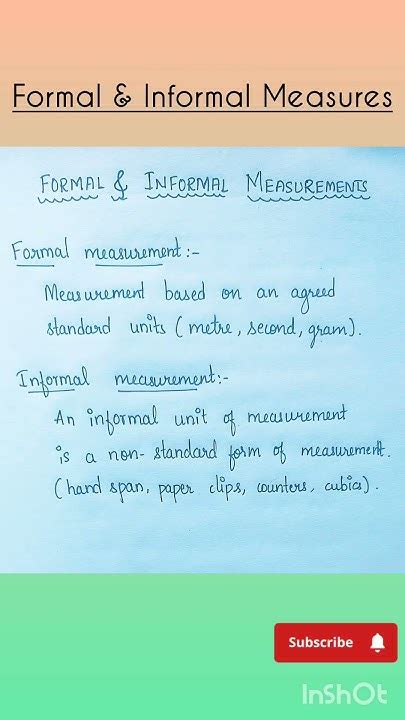 Formal & Informal Measures
FORMAL & INFORMAL MEASUREMENTS
Formal measurement:-
Measurement based on an agreed
standard units (metre, second, gram).
Informal measurement:-
An informal unit of measurement
is a non-standard form of measurement.
(hand span, paper clips, counters, cubics).
Subscribe
InShOt